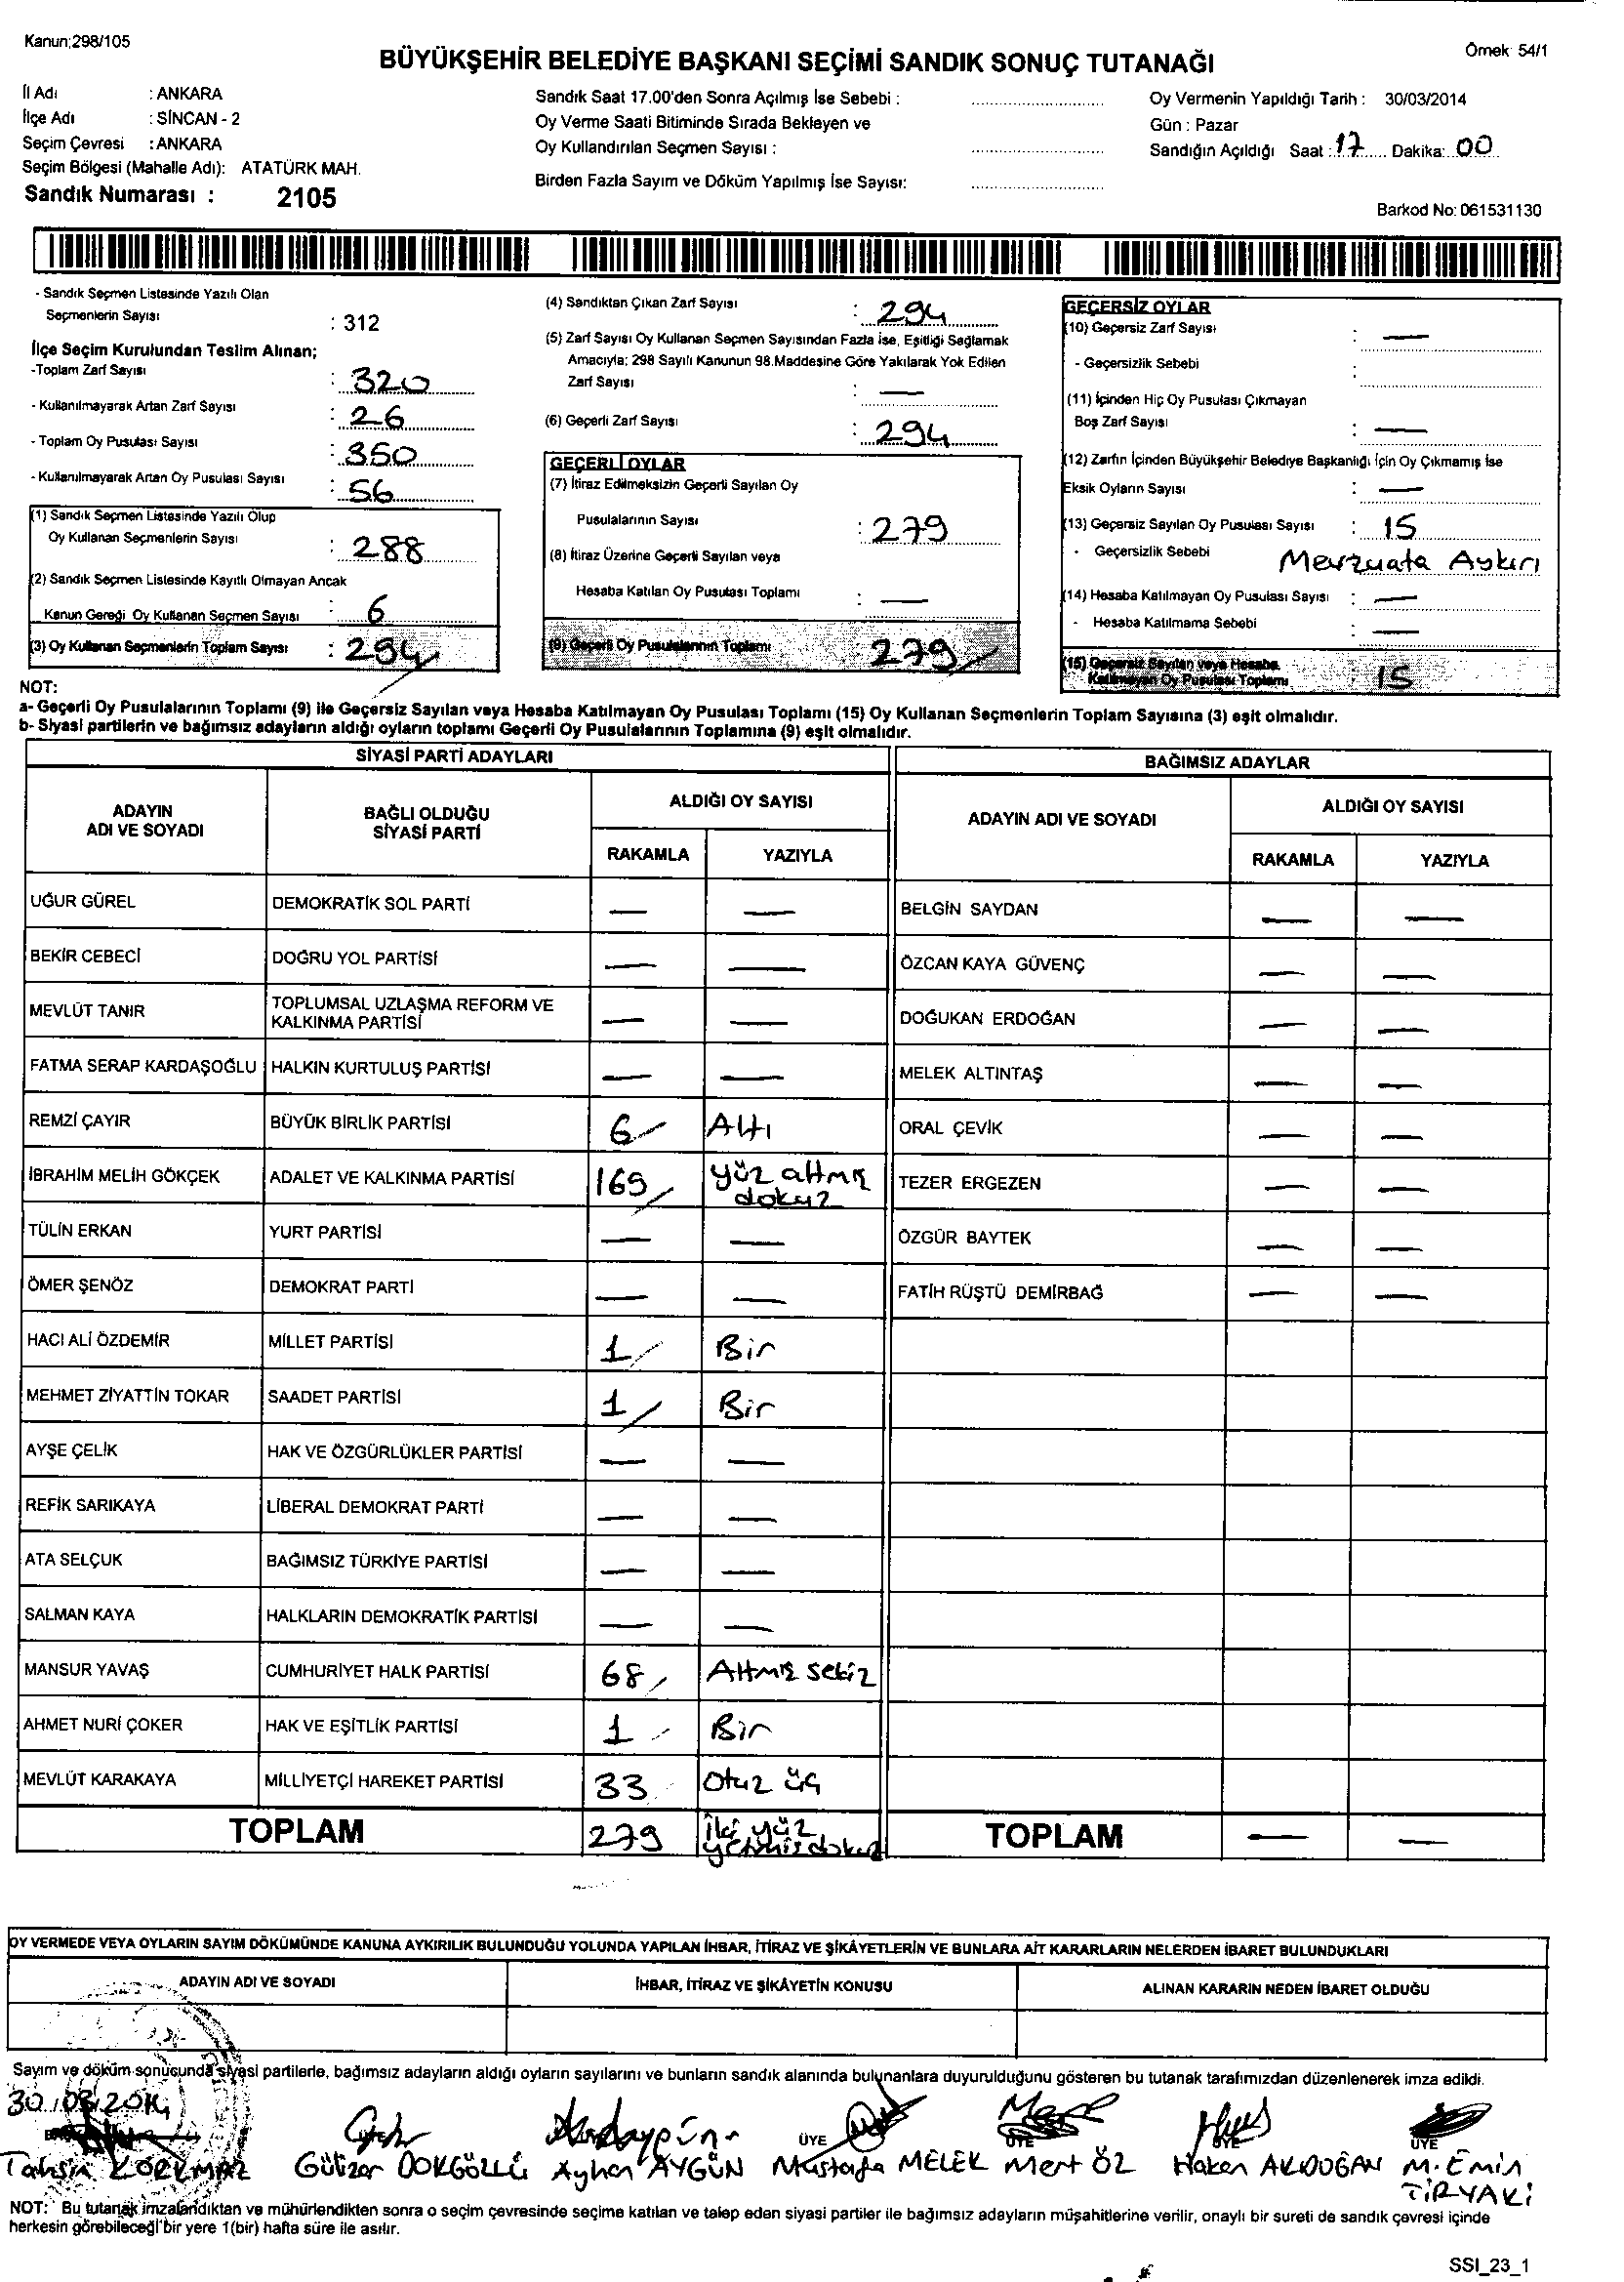 Kanun;298/105
Örnek 54/1
BÜYÜKŞEHİR BELEDİYE BAŞKANI SEÇİMİ SANDIK SONUÇ TUTANAĞI
İl Adı : ANKARA
İlçe Adı : SİNCAN - 2
Seçim Çevresi : ANKARA
Seçim Bölgesi (Mahalle Adı): ATATÜRK MAH.
Sandık Numarası : 2105
Sandık Saat 17.00'den Sonra Açılmış İse Sebebi :
Oy Verme Saati Bitiminde Sırada Bekleyen ve
Oy Kullandırılan Seçmen Sayısı :
Birden Fazla Sayım ve Döküm Yapılmış İse Sayısı:
Oy Vermenin Yapıldığı Tarih : 30/03/2014
Gün : Pazar
Sandığın Açıldığı Saat : 17 Dakika: 00
Barkod No: 061531130
- Sandık Seçmen Listesinde Yazılı Olan
Seçmenlerin Sayısı : 312
İlçe Seçim Kurulundan Teslim Alınan;
-Toplam Zarf Sayısı : 320
- Kullanılmayarak Artan Zarf Sayısı : 26
- Toplam Oy Pusulası Sayısı : 350
- Kullanılmayarak Artan Oy Pusulası Sayısı : 56
(1) Sandık Seçmen Listesinde Yazılı Olup
Oy Kullanan Seçmenlerin Sayısı : 288
(2) Sandık Seçmen Listesinde Kayıtlı Olmayan Ancak
Kanun Gereği Oy Kullanan Seçmen Sayısı : 6
(3) Oy Kullanan Seçmenlerin Toplam Sayısı : 294
(4) Sandıktan Çıkan Zarf Sayısı : 294
(5) Zarf Sayısı Oy Kullanan Seçmen Sayısından Fazla İse, Eşitliği Sağlamak
Amacıyla; 298 Sayılı Kanunun 98.Maddesine Göre Yakılarak Yok Edilen
Zarf Sayısı : —
(6) Geçerli Zarf Sayısı : 294
GEÇERLİ OYLAR
(7) İtiraz Edilmeksizin Geçerli Sayılan Oy
Pusulalarının Sayısı : 279
(8) İtiraz Üzerine Geçerli Sayılan veya
Hesaba Katılan Oy Pusulası Toplamı : —
(9) Geçerli Oy Pusulalarının Toplamı 279
GEÇERSİZ OYLAR
(10) Geçersiz Zarf Sayısı : —
- Geçersizlik Sebebi :
(11) İçinden Hiç Oy Pusulası Çıkmayan
Boş Zarf Sayısı : —
(12) Zarfın İçinden Büyükşehir Belediye Başkanlığı İçin Oy Çıkmamış İse
Eksik Oyların Sayısı : —
(13) Geçersiz Sayılan Oy Pusulası Sayısı : 15
- Geçersizlik Sebebi Mevzuata Aykırı
(14) Hesaba Katılmayan Oy Pusulası Sayısı : —
- Hesaba Katılmama Sebebi : —
(15) Geçersiz Sayılan veya Hesaba
Katılmayan Oy Pusulası Toplamı : 15
NOT:
a- Geçerli Oy Pusulalarının Toplamı (9) ile Geçersiz Sayılan veya Hesaba Katılmayan Oy Pusulası Toplamı (15) Oy Kullanan Seçmenlerin Toplam Sayısına (3) eşit olmalıdır.
b- Siyasi partilerin ve bağımsız adayların aldığı oyların toplamı Geçerli Oy Pusulalarının Toplamına (9) eşit olmalıdır.
SİYASİ PARTİ ADAYLARI
ADAYIN ADI VE SOYADI
BAĞLI OLDUĞU SİYASİ PARTİ
ALDIĞI OY SAYISI
RAKAMLA YAZIYLA
UĞUR GÜREL DEMOKRATİK SOL PARTİ — —
BEKİR CEBECİ DOĞRU YOL PARTİSİ — —
MEVLÜT TANIR TOPLUMSAL UZLAŞMA REFORM VE
KALKINMA PARTİSİ — —
FATMA SERAP KARDAŞOĞLU HALKIN KURTULUŞ PARTİSİ — —
REMZİ ÇAYIR BÜYÜK BİRLİK PARTİSİ 6 Altı
İBRAHİM MELİH GÖKÇEK ADALET VE KALKINMA PARTİSİ 169 yüz altmış
dokuz
TÜLİN ERKAN YURT PARTİSİ — —
ÖMER ŞENÖZ DEMOKRAT PARTİ — —
HACI ALİ ÖZDEMİR MİLLET PARTİSİ 1 Bir
MEHMET ZİYATTİN TOKAR SAADET PARTİSİ 1 Bir
AYŞE ÇELİK HAK VE ÖZGÜRLÜKLER PARTİSİ — —
REFİK SARIKAYA LİBERAL DEMOKRAT PARTİ — —
ATA SELÇUK BAĞIMSIZ TÜRKİYE PARTİSİ — —
SALMAN KAYA HALKLARIN DEMOKRATİK PARTİSİ — —
MANSUR YAVAŞ CUMHURİYET HALK PARTİSİ 68 Altmış sekiz
AHMET NURİ ÇOKER HAK VE EŞİTLİK PARTİSİ 1 Bir
MEVLÜT KARAKAYA MİLLİYETÇİ HAREKET PARTİSİ 33 Otuz üç
TOPLAM 279 İki yüz
yetmiş dokuz
BAĞIMSIZ ADAYLAR
ADAYIN ADI VE SOYADI
ALDIĞI OY SAYISI
RAKAMLA YAZIYLA
BELGİN SAYDAN — —
ÖZCAN KAYA GÜVENÇ — —
DOĞUKAN ERDOĞAN — —
MELEK ALTINTAŞ — —
ORAL ÇEVİK — —
TEZER ERGEZEN — —
ÖZGÜR BAYTEK — —
FATİH RÜŞTÜ DEMİRBAĞ — —
TOPLAM — —
OY VERMEDE VEYA OYLARIN SAYIM DÖKÜMÜNDE KANUNA AYKIRILIK BULUNDUĞU YOLUNDA YAPILAN İHBAR, İTİRAZ VE ŞİKÂYETLERİN VE BUNLARA AİT KARARLARIN NELERDEN İBARET BULUNDUKLARI
ADAYIN ADI VE SOYADI İHBAR, İTİRAZ VE ŞİKÂYETİN KONUSU ALINAN KARARIN NEDEN İBARET OLDUĞU
Sayım ve döküm sonucunda siyasi partilerle, bağımsız adayların aldığı oyların sayılarını ve bunların sandık alanında bulunanlara duyurulduğunu gösteren bu tutanak tarafımızdan düzenlenerek imza edildi.
30.03.2014
ÜYE ÜYE ÜYE ÜYE
Tahsin KORKMAZ Gülizar DOKGÖZLÜ Ayhan AYGÜN Mustafa MELEK Mert ÖZ Hakan AKDOĞAN M. Emin
TİRYAKİ
NOT: Bu tutanak imzalandıktan ve mühürlendikten sonra o seçim çevresinde seçime katılan ve talep eden siyasi partiler ile bağımsız adayların müşahitlerine verilir, onaylı bir sureti de sandık çevresi içinde
herkesin görebileceği bir yere 1(bir) hafta süre ile asılır.
SSI_23_1